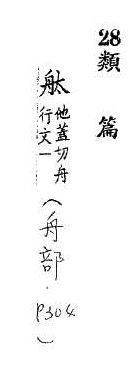 28
類篇
舦他蓋切舟
行文一
(舟部．P304)